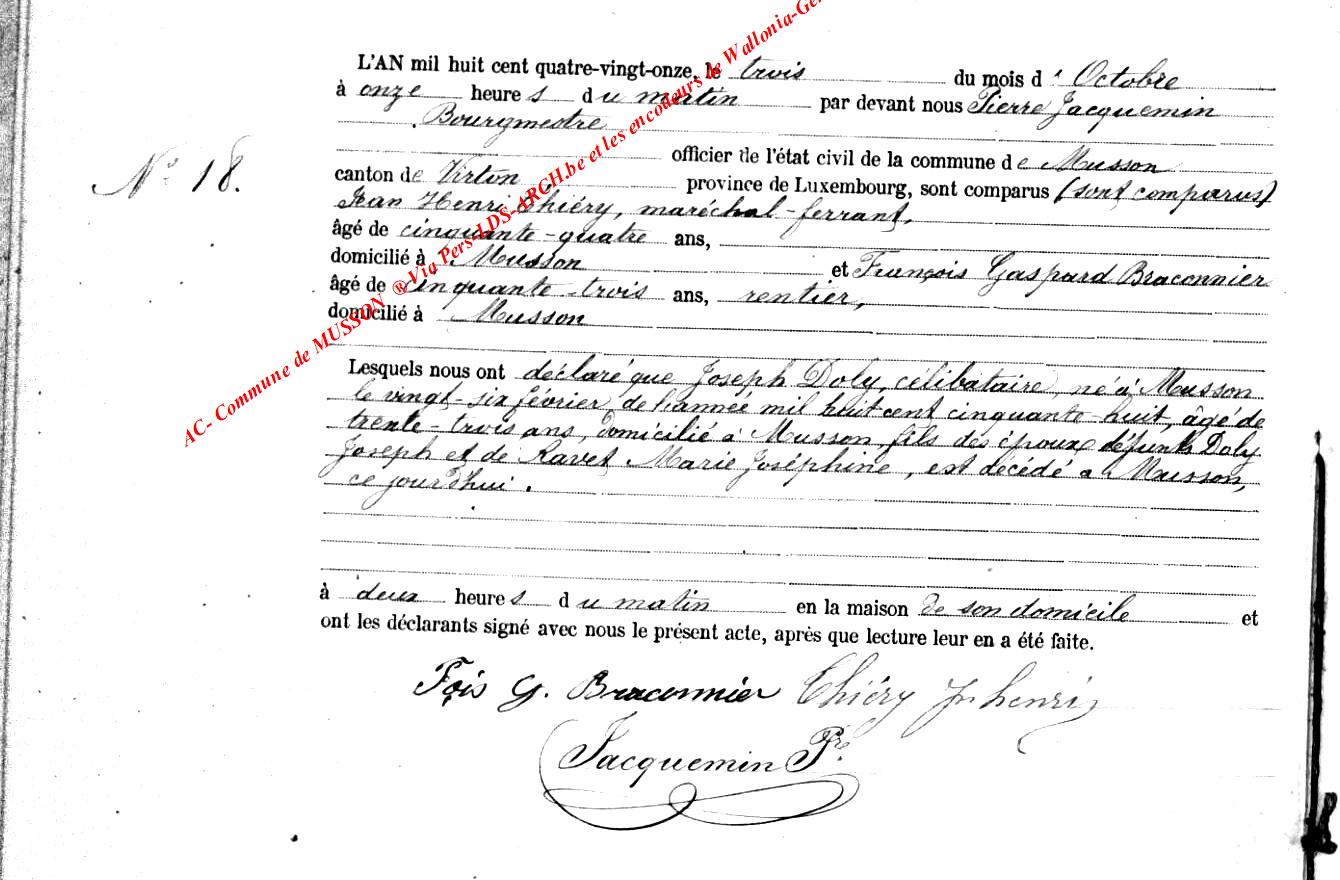 L'AN mil huit cent quatre-vingt-onze, le trois du mois d' Octobre
à onze heures du matin par devant nous Pierre Jacquemin
Bourgmestre
officier de l'état civil de la commune de Musson
N° 18.
canton de Virton province de Luxembourg, sont comparus (sont comparus)
Jean Henri Thiéry, maréchal-ferrant,
âgé de cinquante-quatre ans,
domicilié à Musson et François Gaspard Braconnier
âgé de cinquante-trois ans, rentier,
domicilié à Musson
Lesquels nous ont déclaré que Joseph Doly, célibataire, né à Musson
le vingt-six février de l'année mil huit cent cinquante-huit, âgé de
trente-trois ans, domicilié à Musson, fils des époux défunts Doly
Joseph et de Ravet Marie Joséphine, est décédé a Musson,
ce jourd'hui.
à deux heures du matin en la maison de son domicile et
ont les déclarants signé avec nous le présent acte, après que lecture leur en a été faite.
Fçis G. Braconnier Thiéry Jn henri
Jacquemin Pre.
AC- Commune de MUSSON ® Via Pers LDS-ARCH.be et les encodeurs de Wallonia-Ge